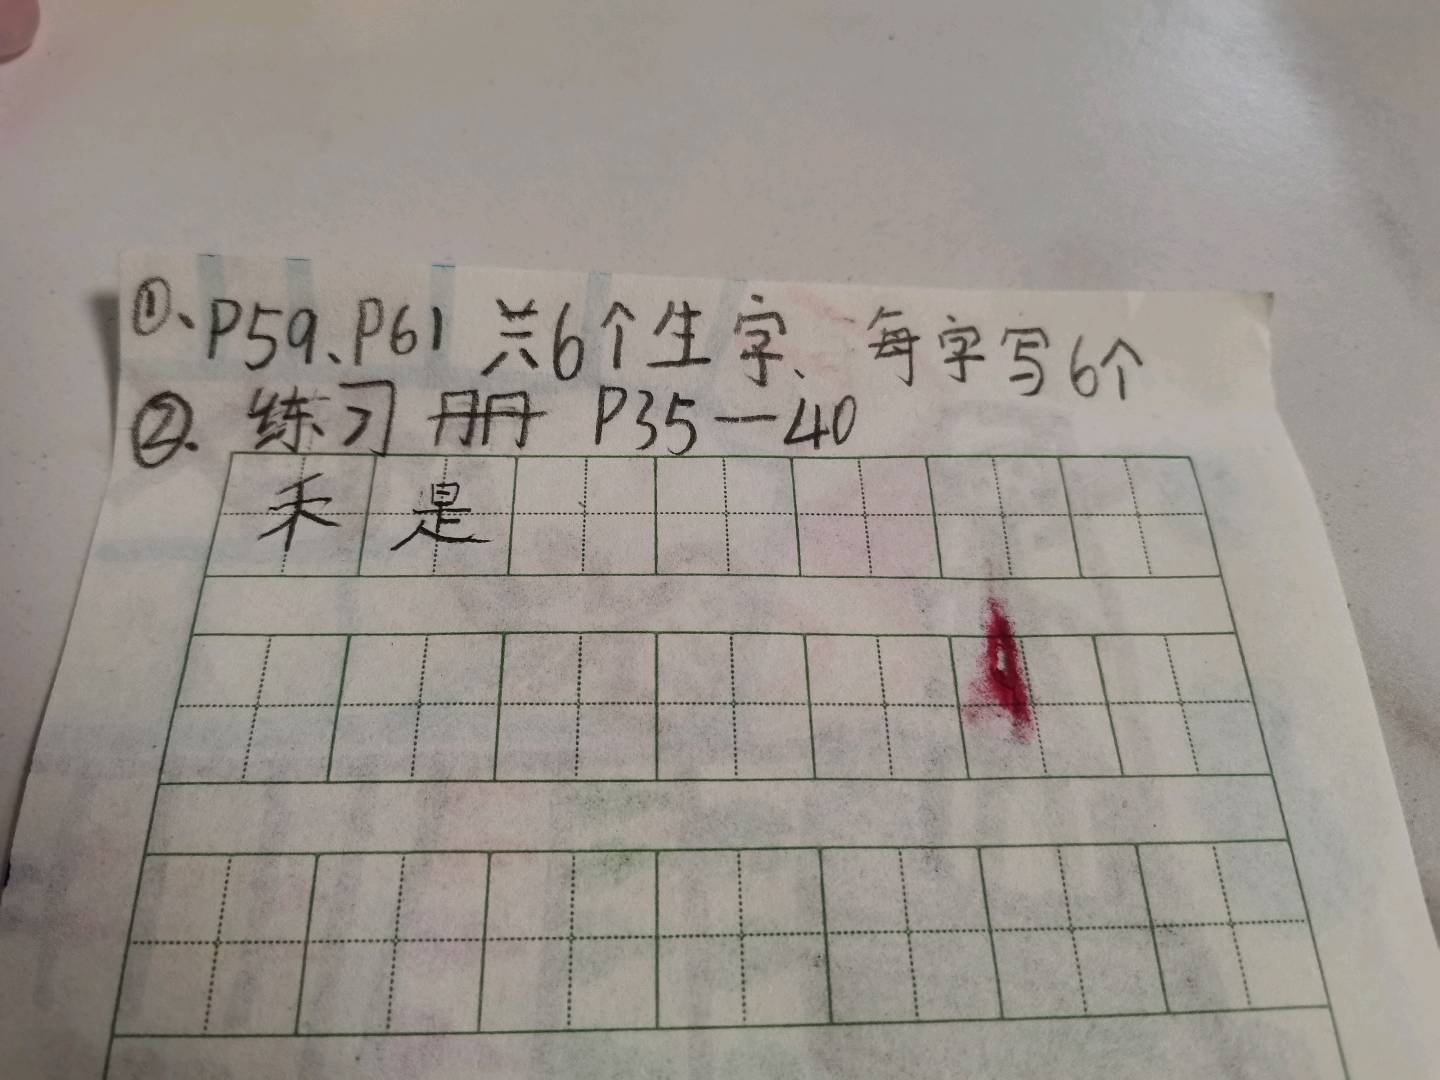 ①、P59、P61 共6个生字、每字写6个
②. 练习册 P35—40
禾 是